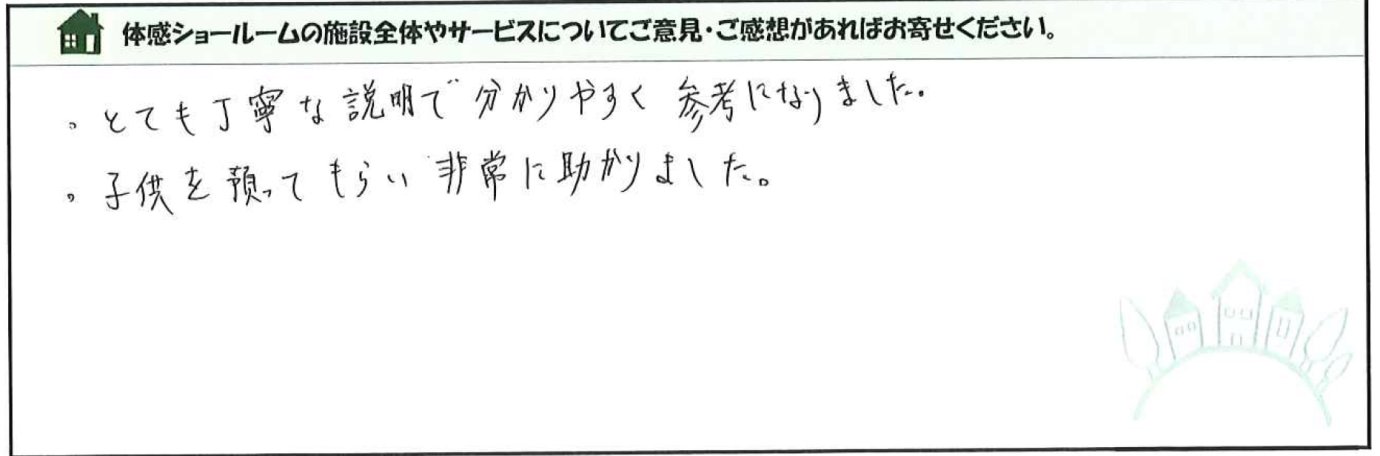 体感ショールームの施設全体やサービスについてご意見・ご感想があればお寄せください。
。とても丁寧な説明で分かりやすく参考になりました。
。子供を預ってもらい非常に助かりました。